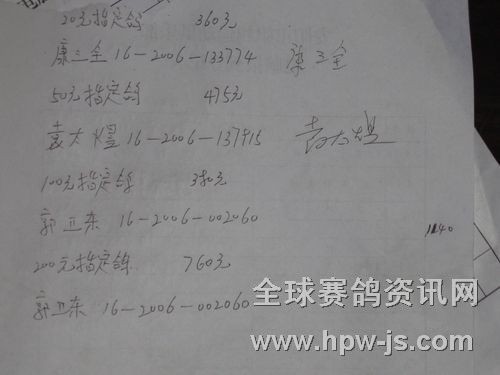 20元指定鸽 360元
康三全 16-2006-133774 康三全
50元指定鸽 475元
袁大煜 16-2006-137915 袁大煜
100元指定鸽 380元
郭卫东 16-2006-002060
1140
200元指定鸽 760元
郭卫东 16-2006-002060
全球赛鸽资讯网
www.hpw-js.com